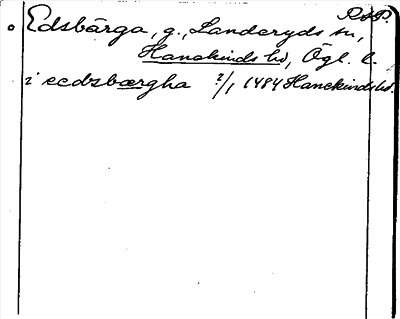 RAP.
Edsbärga, g., Landeryds sn,
Hanekinds hd, Ögl. l.
i ecdzbærgha 2/1 1484 Hanekinds hd.